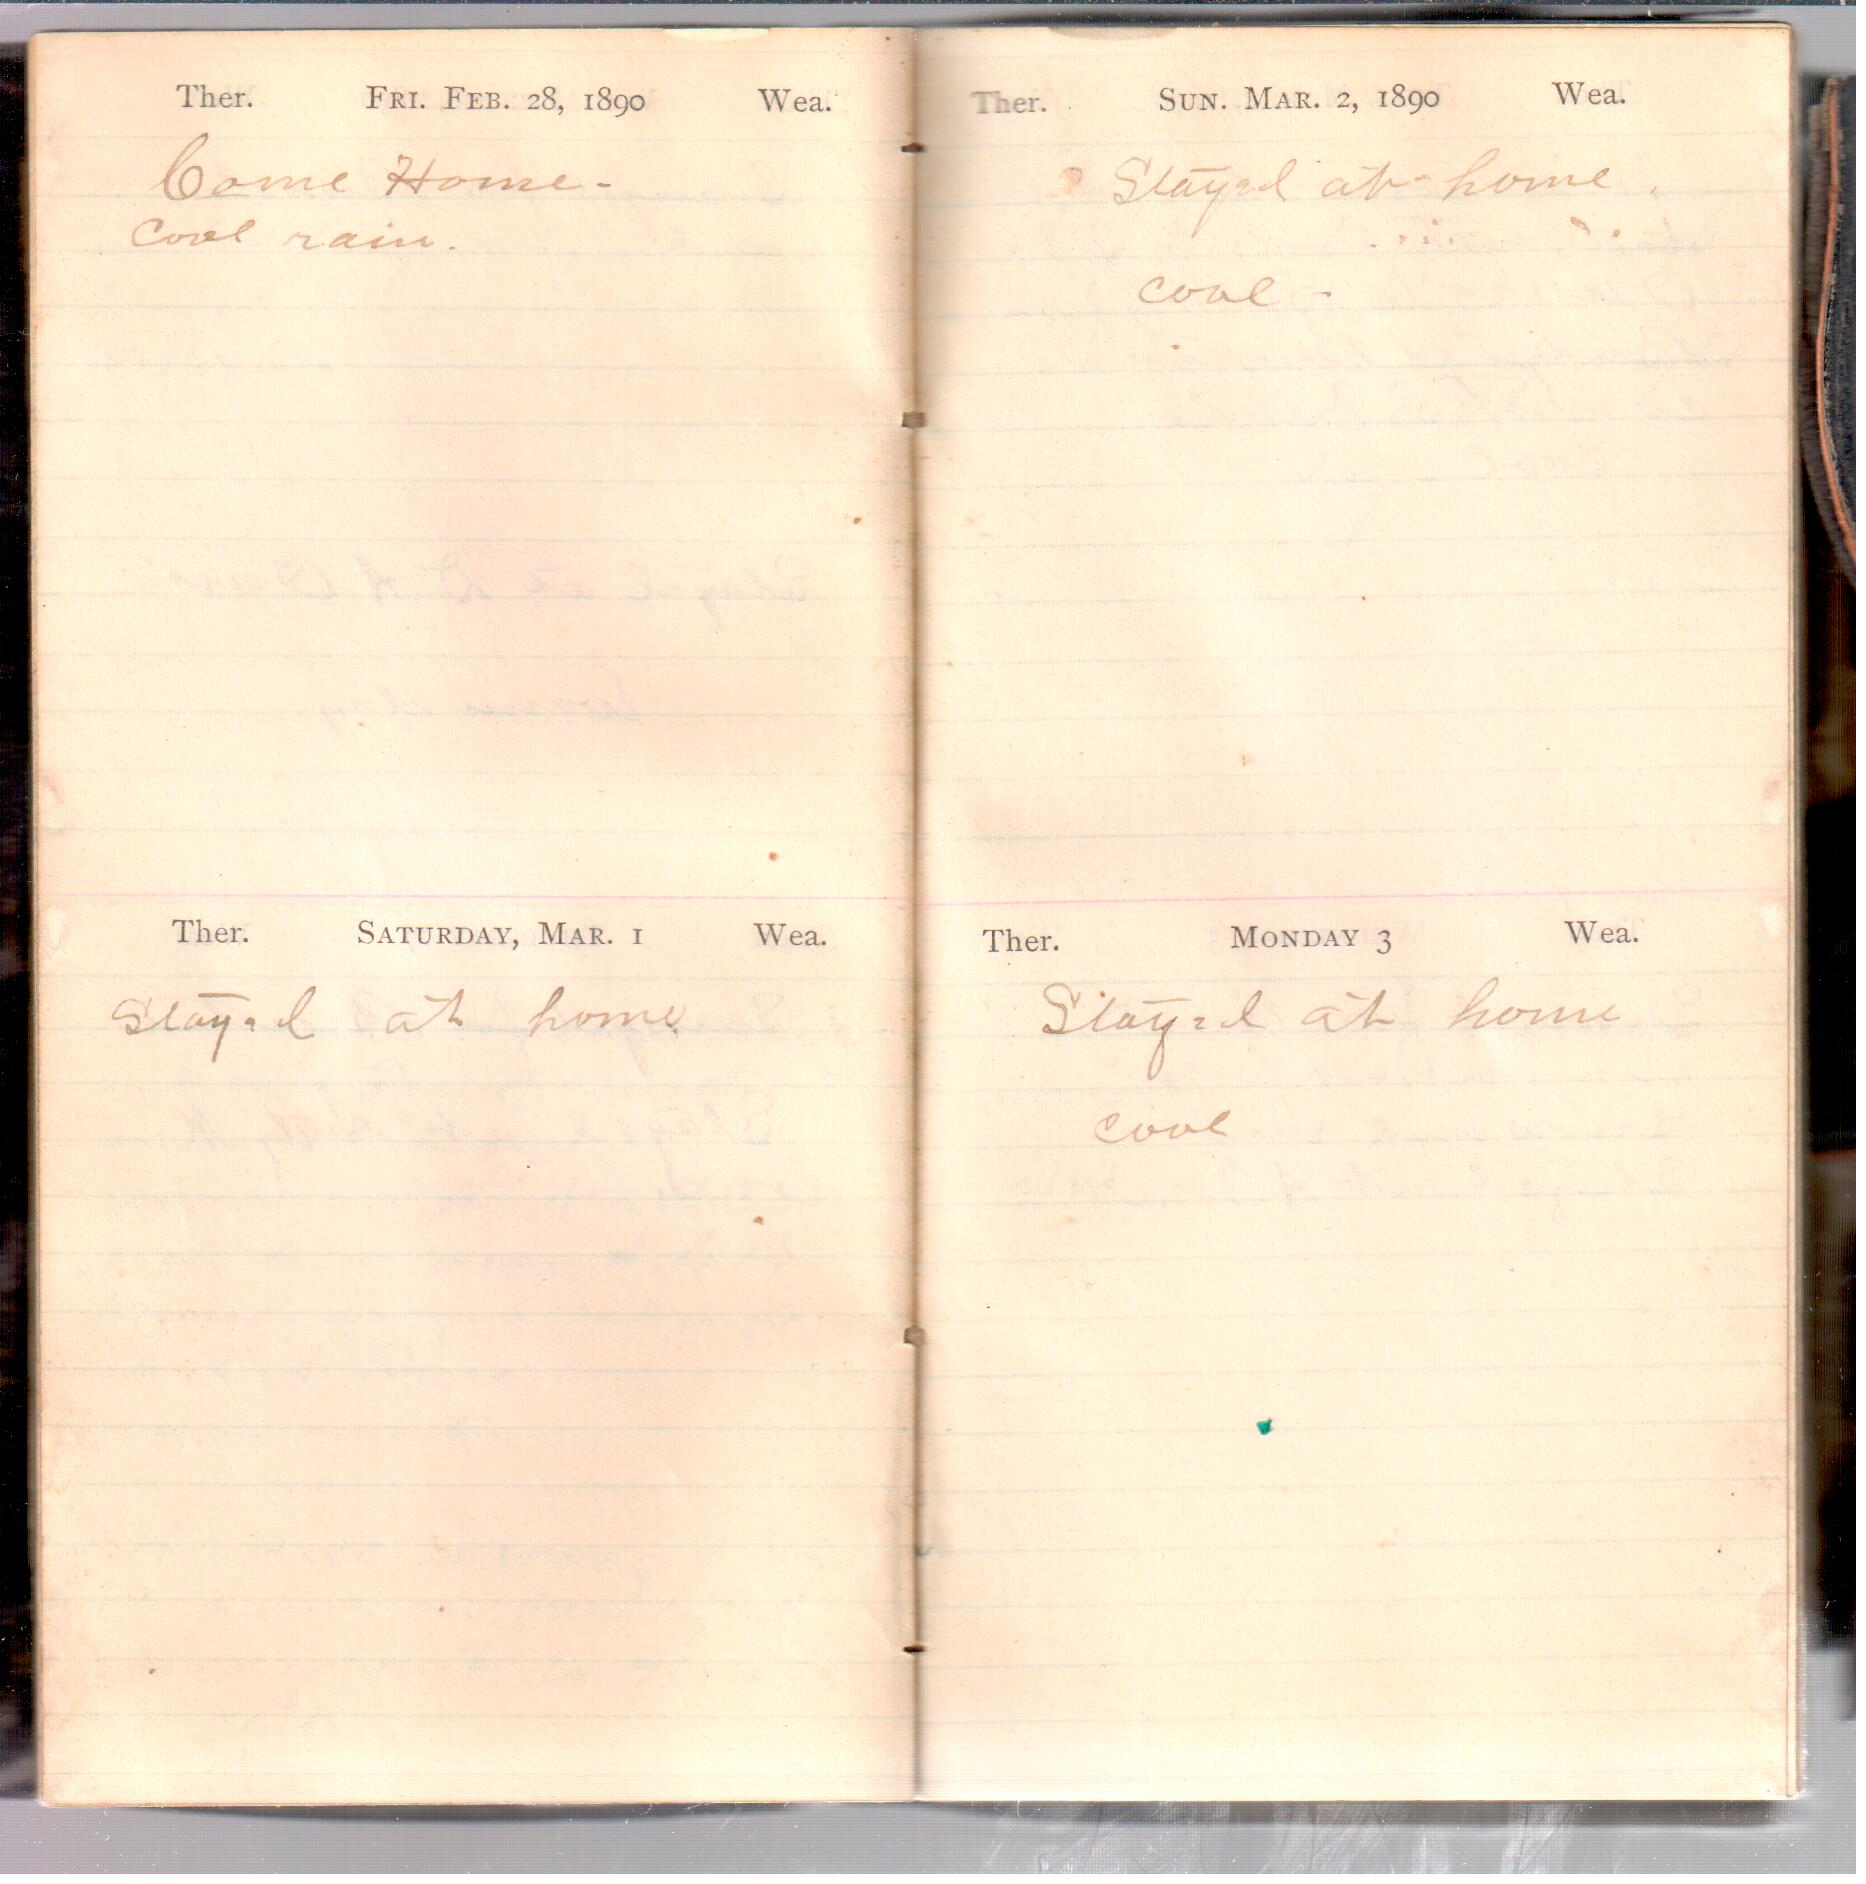 Ther. Fri. Feb. 28, 1890 Wea.
Come Home-
cool rain.
Ther. Saturday, Mar. 1 Wea.
Stayed at home
Ther. Sun. Mar. 2, 1890 Wea.
Stayed at home.
cool -
Ther. Monday 3 Wea.
Stayed at home
cool